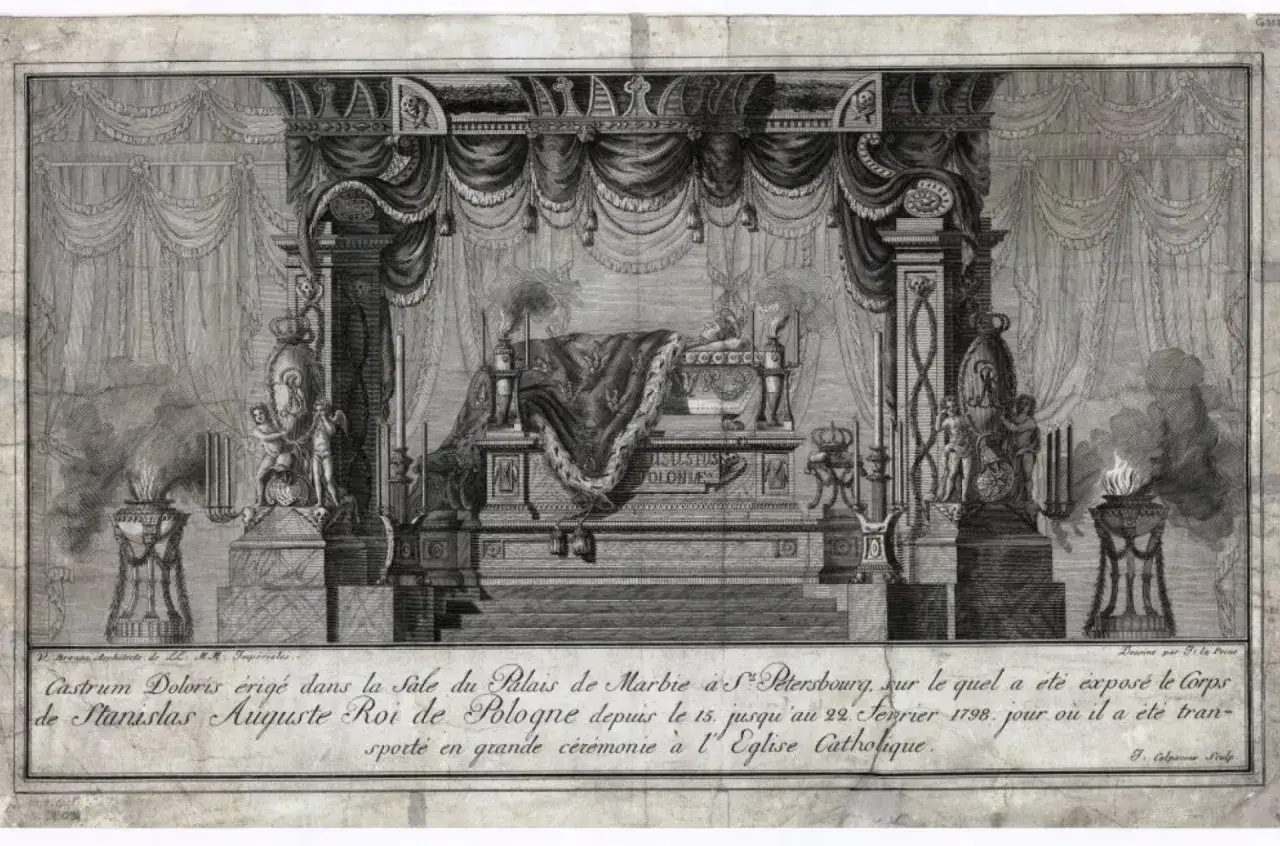 JUSTUS
POLONIÆ
V. Brenna Architecte de LL. MM. Impériales.
Dessiné par J. la Peine
Castrum Doloris érigé dans la Sale du Palais de Marbre à St. Pétersbourg, sur le quel a été éxposé le Corps
de Stanislas Auguste Roi de Pologne depuis le 15. jusqu'au 22. Fevrier 1798. jour où il a été tran-
sporté en grande cérémonie à l'Eglise Catholique.
Sculp